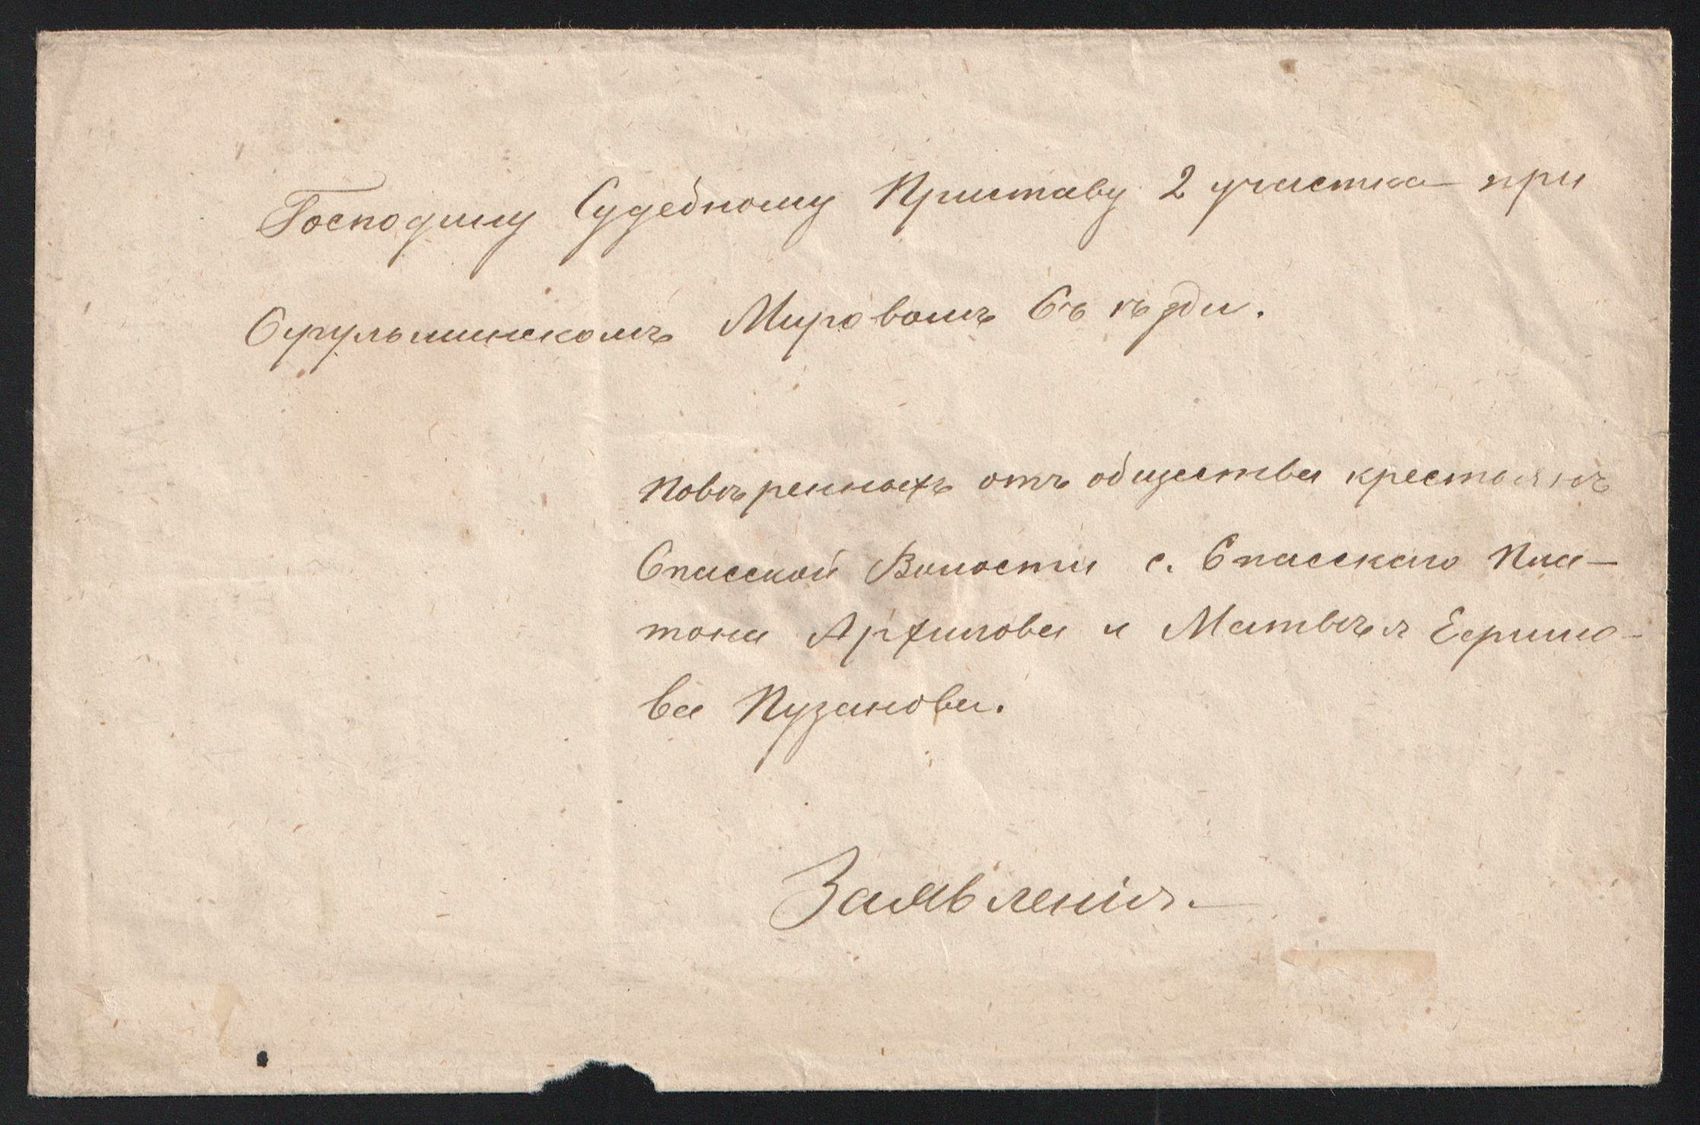 Господину Судебному Приставу 2 участка при
Мировомъ Съѣзди.
Повѣренныхъ отъ общества крестьянъ
Спасской Волости с. Спасскаго Пла-
тона Архипова и Матвѣя Ефимо-
ва Пузанова.
Заявленія.